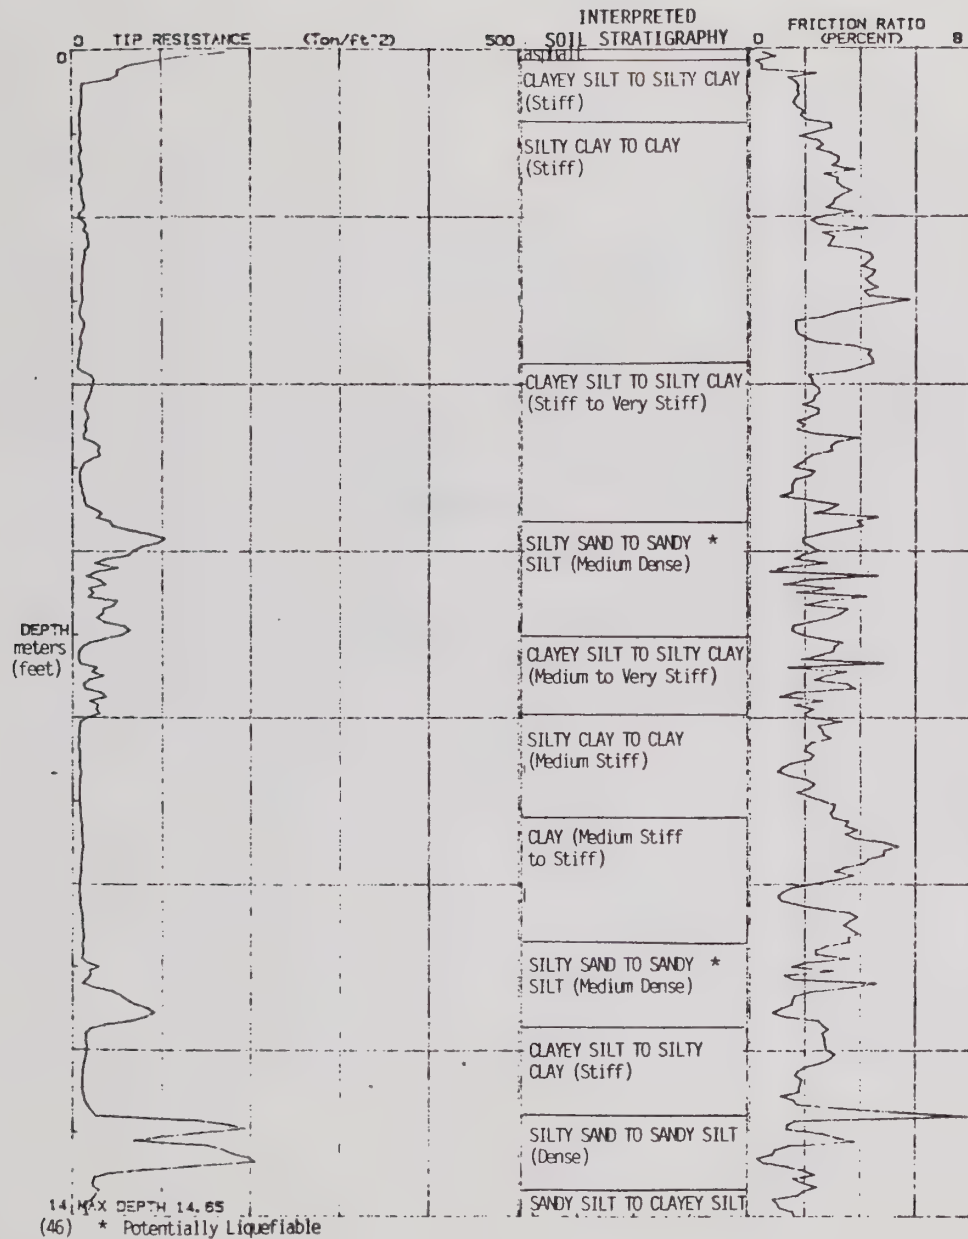 INTERPRETED
0 TIP RESISTANCE (Ton/ft^2) 500 SOIL STRATIGRAPHY 0 FRICTION RATIO (PERCENT) 8
0
asphalt
CLAYEY SILT TO SILTY CLAY
(Stiff)
SILTY CLAY TO CLAY
(Stiff)
CLAYEY SILT TO SILTY CLAY
(Stiff to Very Stiff)
SILTY SAND TO SANDY *
SILT (Medium Dense)
DEPTH
meters
(feet)
CLAYEY SILT TO SILTY CLAY
(Medium to Very Stiff)
SILTY CLAY TO CLAY
(Medium Stiff)
CLAY (Medium Stiff
to Stiff)
SILTY SAND TO SANDY *
SILT (Medium Dense)
CLAYEY SILT TO SILTY
CLAY (Stiff)
SILTY SAND TO SANDY SILT
(Dense)
SANDY SILT TO CLAYEY SILT
14 MAX DEPTH 14.65
(46) * Potentially Liquefiable